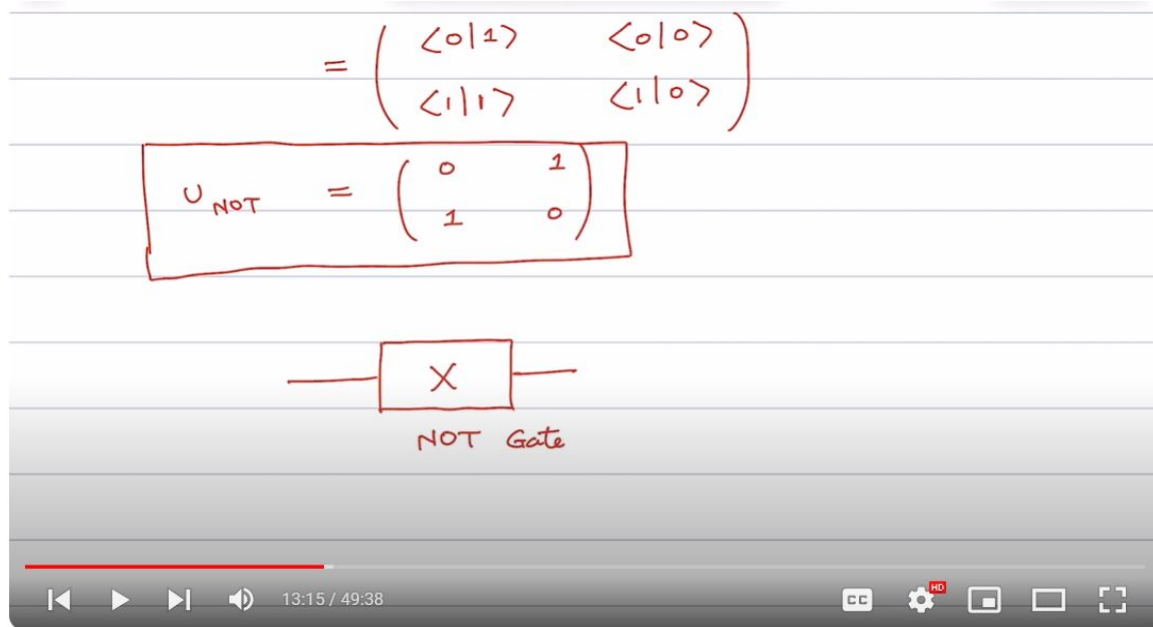 = ( <0|1> <0|0>
<1|1> <1|0> )
U NOT = ( 0 1
1 0 )
X
NOT Gate
13:15 / 49:38
CC
HD